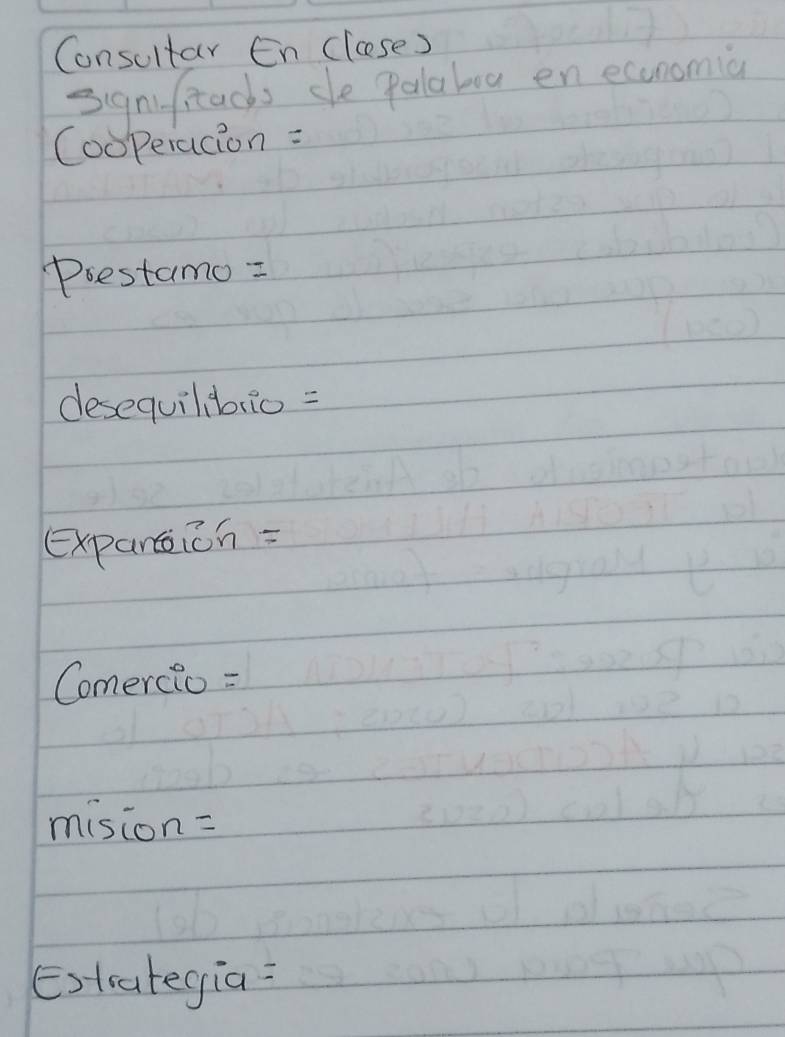 Consultar En Clases
Significados de Palabra en economia
Cooperacion =
Prestamo =
desequilibrio =
Expansion =
Comercio =
mision =
Estrategia =